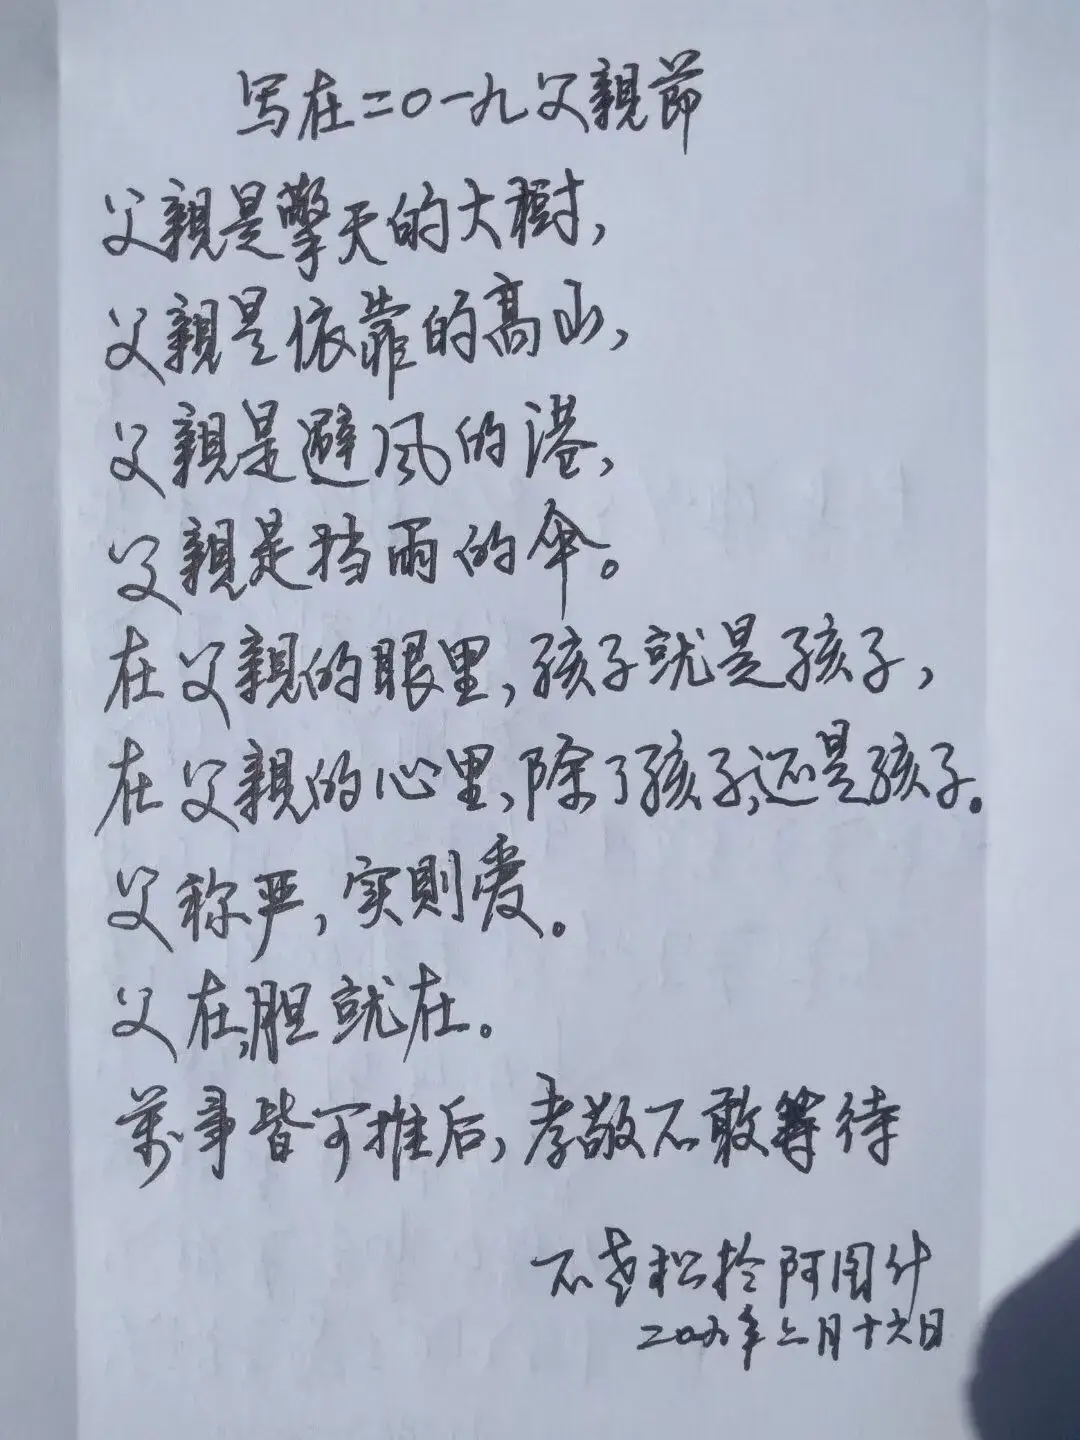 写在二〇一九父親節
父親是擎天的大樹,
父親是依靠的高山,
父親是避风的港,
父親是挡雨的伞。
在父親的眼里,孩子就是孩子,
在父親的心里,除了孩子,还是孩子。
父称严,实則爱。
父在,胆就在。
萬事皆可推后,孝敬不敢等待
不老松於阿图什
二〇一九年六月十六日